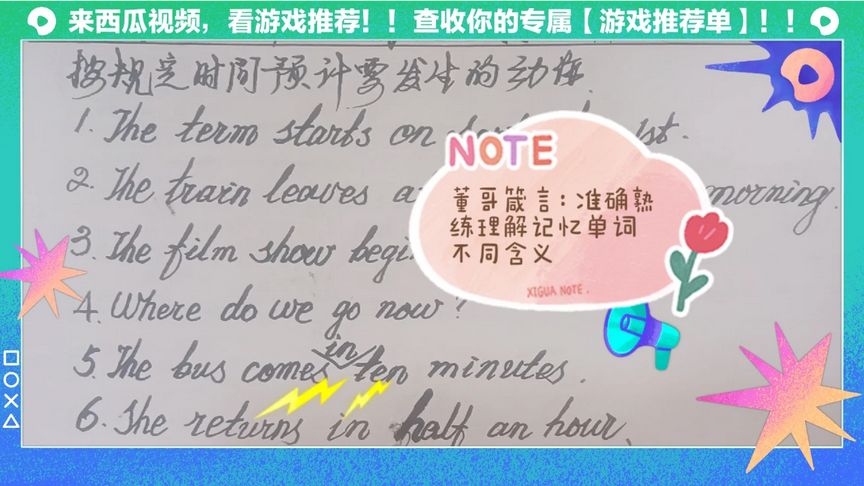 来西瓜视频，看游戏推荐！！查收你的专属【游戏推荐单】！！
按规定时间预计要发生的动作.
1. The term starts on st.
2. The train leaves a morning.
3. The film show begi
4. Where do we go now?
5. The bus comes in ten minutes.
6. She returns in half an hour.
NOTE
董哥箴言：准确熟
练理解记忆单词
不同含义
XIGUA NOTE.